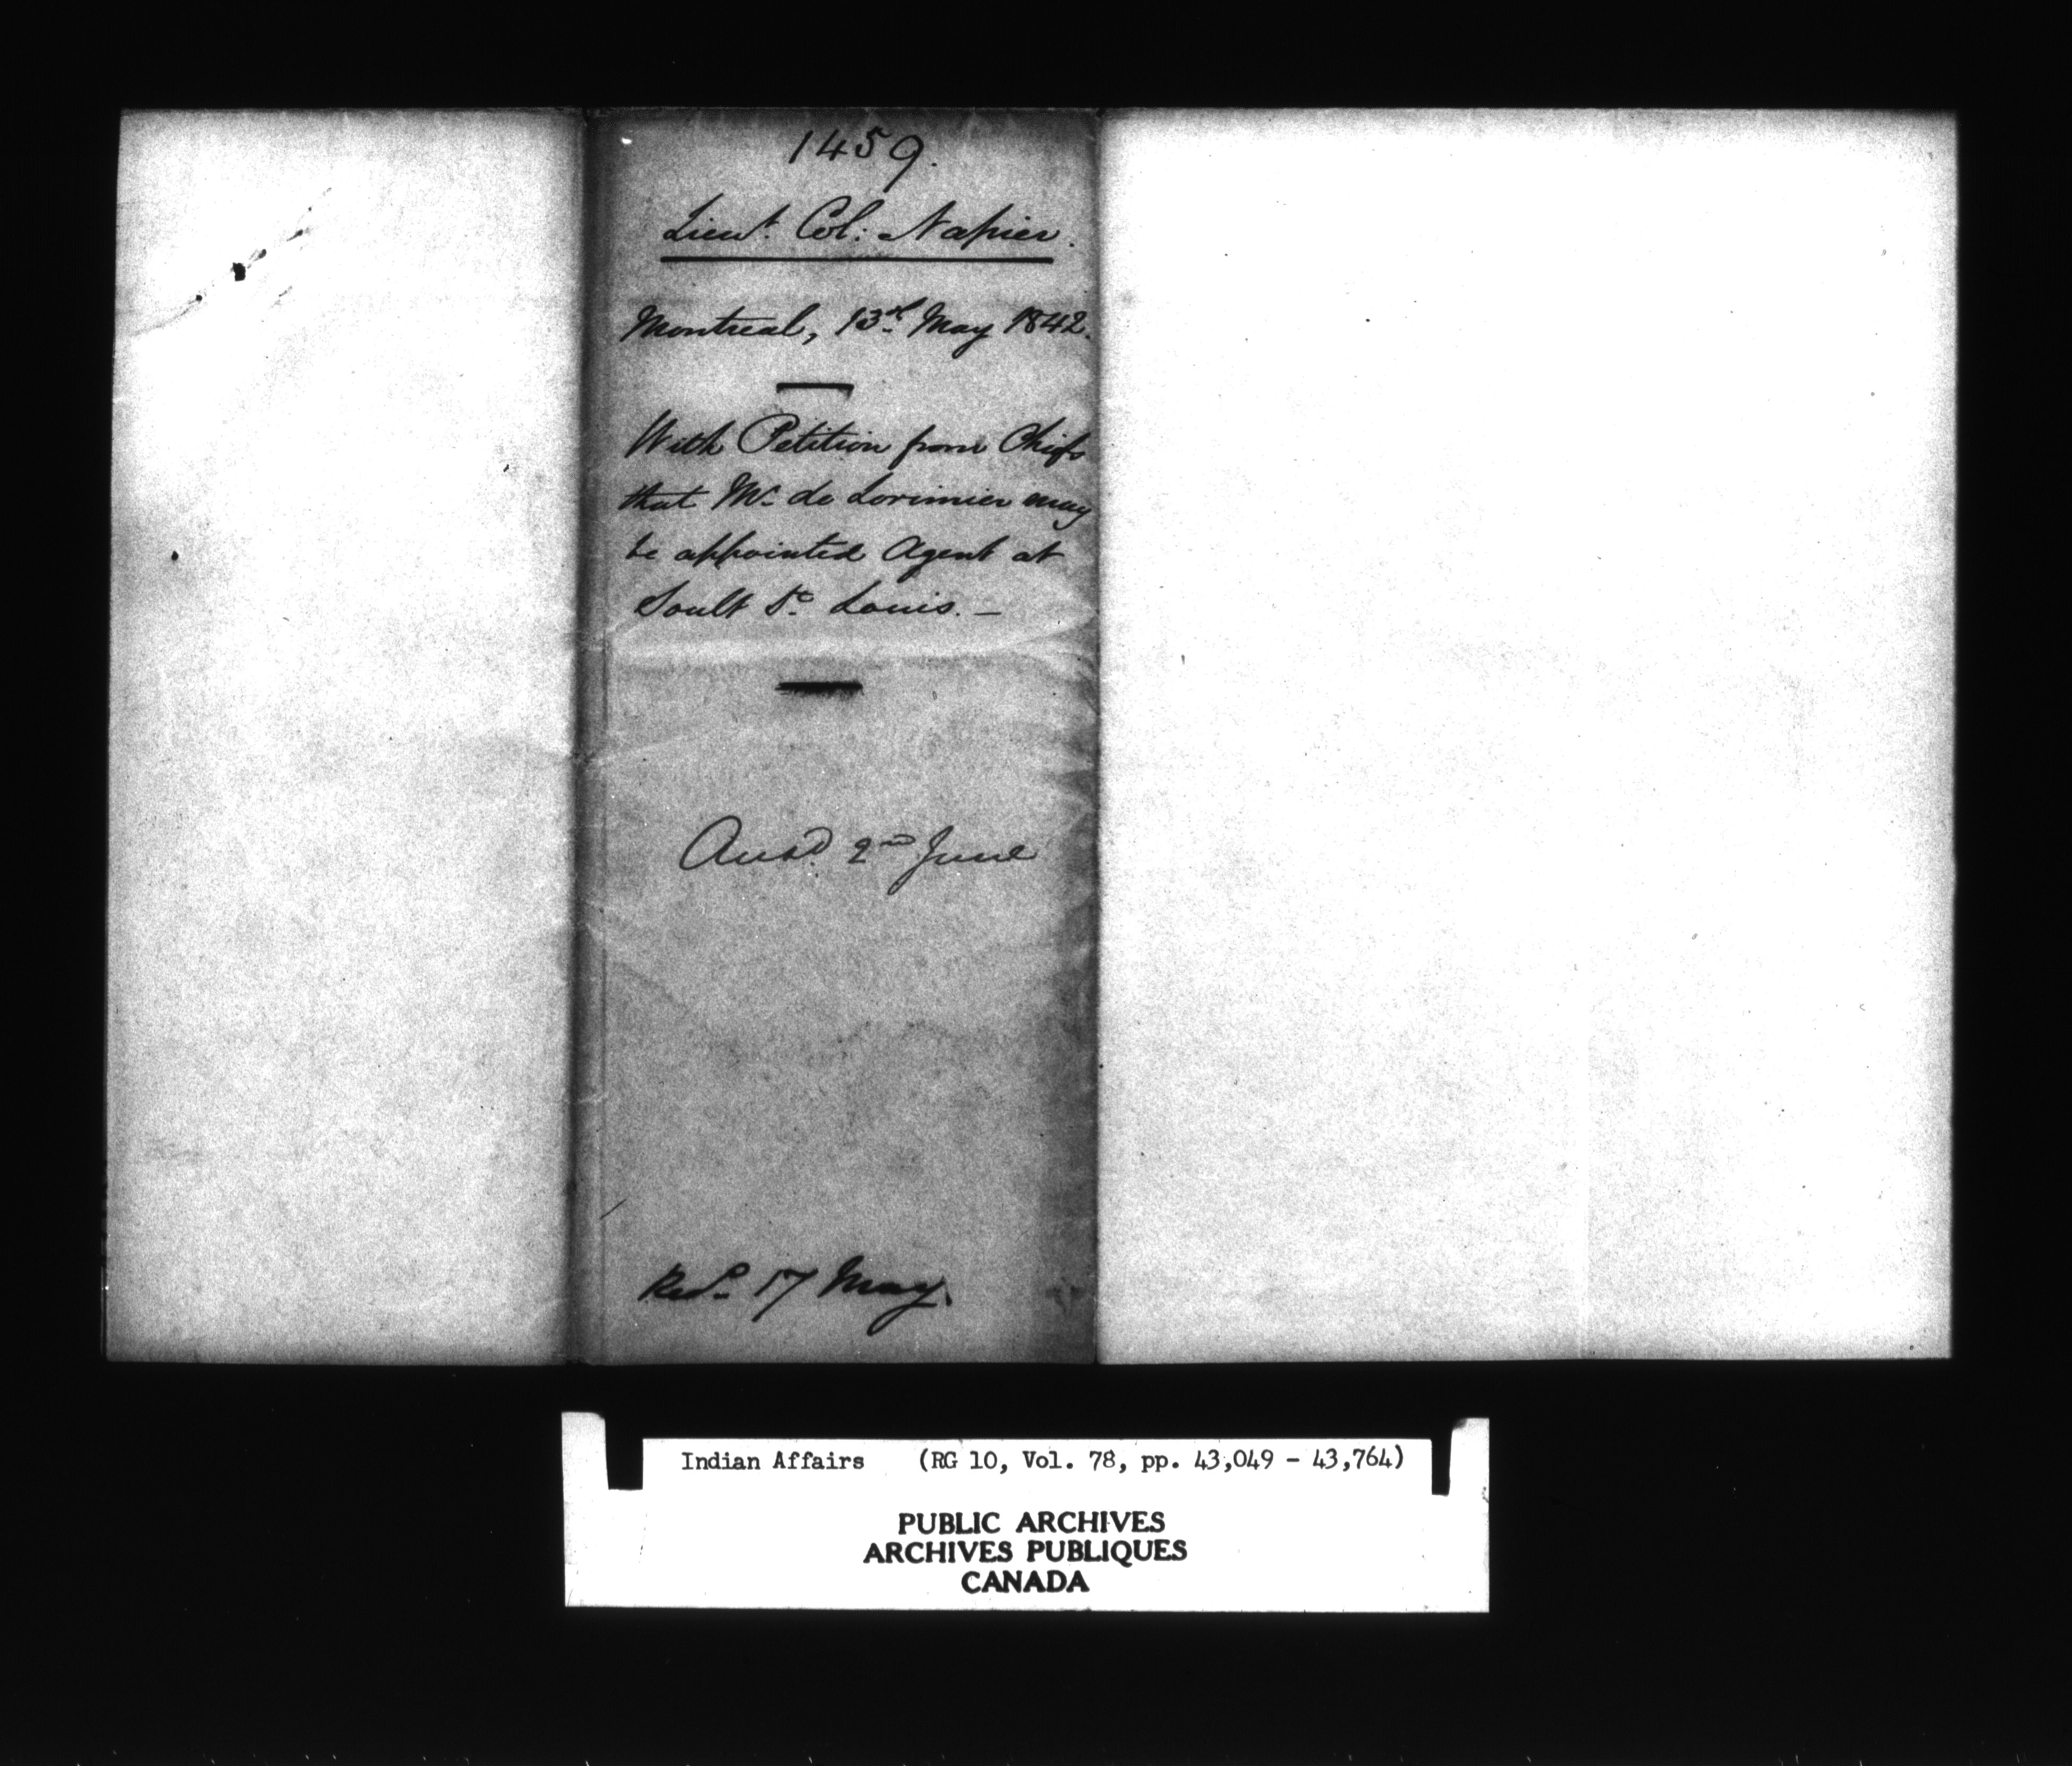 1459.
Lieut. Col: Napier.
Montreal, 13th May 1842.
With Petition from Chiefs
that Mr. de Lorimier may
be appointed Agent at
Soult St. Louis. —
Ansd. 2nd June
Recd. 17 May.
Indian Affairs (RG 10, Vol. 78, pp. 43,049 - 43,764)
PUBLIC ARCHIVES
ARCHIVES PUBLIQUES
CANADA